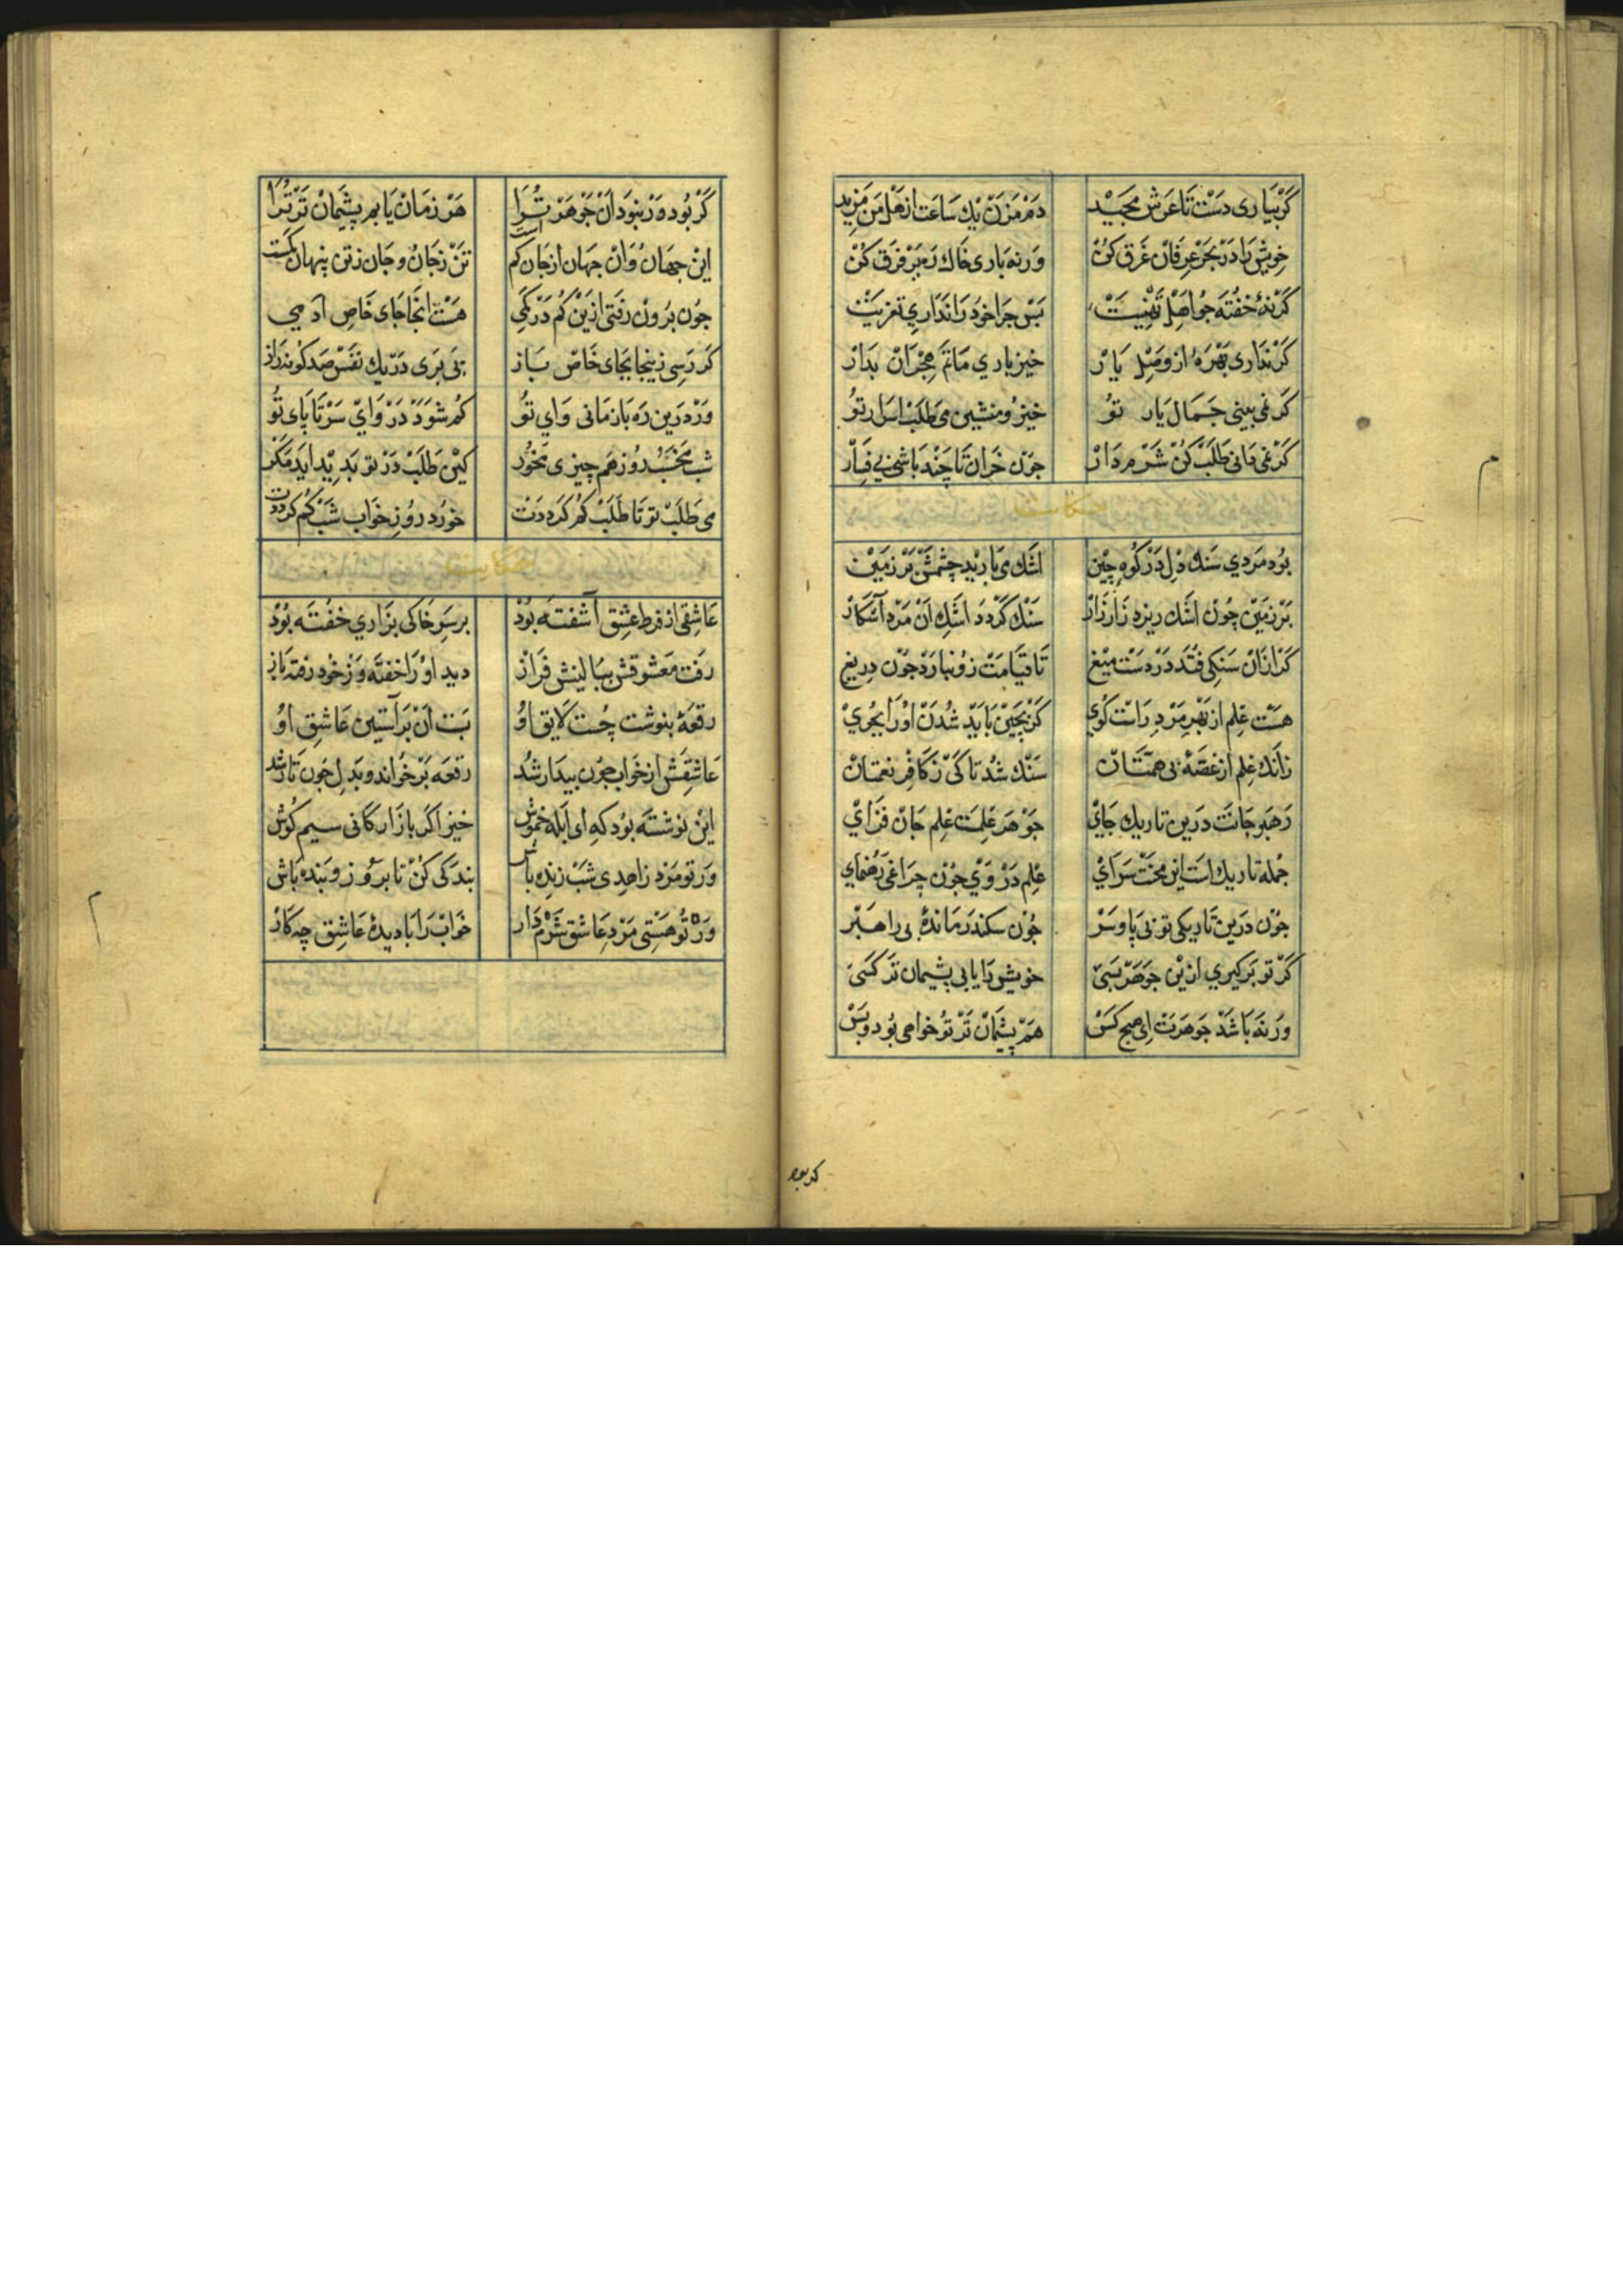 کر بیاری دست تا عرش مجید دم مزن یك ساعت از هل من مزید
خویش را در بحر عرفان غرق کن ورنه باری خاك ره بر فرق کن
کر نهٔ خفته جو اهل تهنیت بس جرا خود را نداری تعزیت
کر نداری بهره از وصل یار خیز باری ماتم هجران بدار
کر نمی بینی جمال یار تو خیز و منشین می طلب اسرار تو
کر نمی دانی طلب کن شرم دار جون خران تا چند باشی بی فسار
حکایت
بود مردی سنك دل در کوه چین اشك می بارید چشمش بر زمین
بر زمین چون اشك ریزد زار زار سنك کردد اشك آن مرد آشکار
کر ازان سنکی فتد در دست میغ تا قیامت زو نبارد جون دریغ
هست علم از بهر مرد راست کوی کر بچین باید شدن او را بجوی
زانك علم از غصهٔ بی همتان سنك شد تا کی ز کافر نعمتان
جمله تاریك است این محنت سرای علم در وی جون چراغی رهنمای
رهبر جانت درین تاریك جای جوهر علمت علم جان فزای
جون درین تاریکی تو بی پا و سر چون سکندر ماندهٔ بی راهبر
کر تو برکیری ازین جوهر بسی خویش را یابی پشیمان تر کسی
ورنه باشد جوهرت ای هیچ کس هم پشیمان تر تو خواهی بود و بس
کر بود
کر بود ور نبود آن جوهر ترا هر زمان یابم پشیمان تر ترا
این جهان وان جهان از جان کم است تن ز جان و جان ز تن پنهان کمست
جون برون رفتی ازین کم در کمی هست انجا جای خاص آدمی
کر رسی زینجا بجای خاص باز پی بری در یك نفس صد کونه راز
ور درین ره باز مانی وای تو کم شود در وای سر تا پای تو
شب مخسب روز هم چیزی مخور کین طلب در تو بدید اید مکر
می طلب تو تا طلب کم کرددت خورد روز خواب شب کم کرددت
حکایت
عاشقی از فرط عشق آشفته بود بر سر خاکی بزاری خفته بود
رفت معشوقش ببالینش فراز دید او را خفته وز خود رفته باز
رقعهٔ بنوشت چست لایق او بست آن بر آستین عاشق او
عاشقش از خواب جون بیدار شد رقعه بر خواند و بدل خون تار شد
این نوشته بود که ای ابله خموش خیز اکر بازارکانی سیم کوش
ور تو مرد زاهدی شب زنده باش بندکی کن تا بروز و بنده باش
ور تو هستی مرد عاشق شرم دار خواب را با دیدهٔ عاشق چه کار